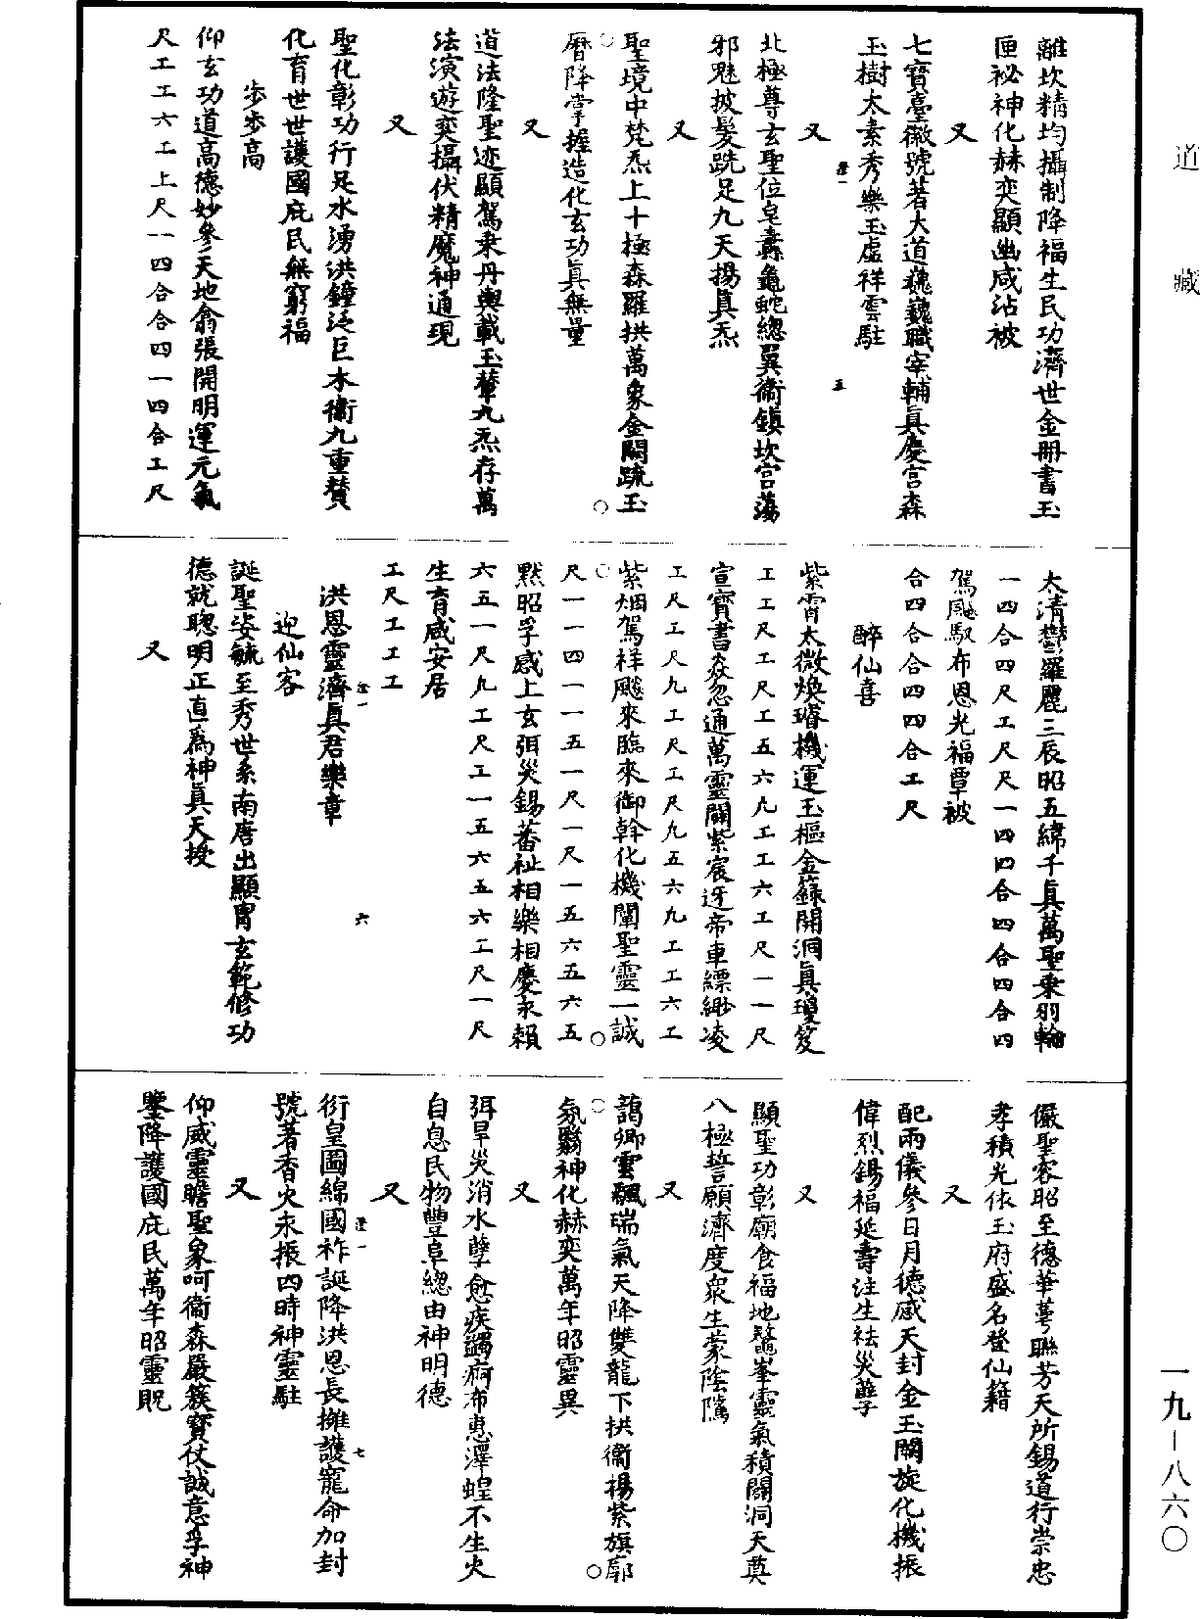 道藏
離坎精均攝制降福生民功濟世金冊書玉
匣祕神化赫奕顯幽咸沾被
又
七寶臺徽號著大道巍巍職宰輔真慶宮森
玉樹太素秀樂玉虛祥雲駐
又
澄一
五
北極尊玄聖位皂纛龜蛇總翼衛鎮坎宮蕩
邪魅披髮跣足九天揚真炁
又
聖境中梵炁上十極森羅拱萬象金闕疏玉
曆降掌握造化玄功真無量
又
道法隆聖迹顯駕乘丹輿載玉輦九炁存萬
法演遊奕攝伏精魔神通現
又
聖化彰功行足水湧洪鐘泛巨木衛九重贊
化育世世護國庇民無窮福
步步高
仰玄功道高德妙參天地翕張開明運元氣
尺工工六工上尺一四合合四一四合工尺
太清鬱羅麗三辰昭五緯千真萬聖乘羽輪
一四合四尺工尺尺一四四合四合四合四
駕飈馭布恩光福覃被
合四合合四四合工尺
醉仙喜
紫霄太微煥璿機運玉樞金籙開洞真瓊笈
工工尺工尺工五六九工工六工尺一一尺
宣寶書焱忽通萬靈闕紫宸迓帝車縹緲凌
工尺工尺九工尺工尺九五六九工工六工
紫烟駕祥飈來臨來御幹化機闡聖靈一誠
尺一一四一一五一尺一尺一五六五六五
默昭孚感上玄弭災錫蕃祉相樂相慶永賴
六五一尺九工尺工一五六五六工尺一尺
生育咸安居
工尺工工工
洪恩靈濟真君樂章
澄一
六
迎仙客
誕聖姿毓至秀世系南唐出顯冑玄範修功
德就聰明正直為神真天授
又
儼聖容昭至德華萼聯芳天所錫道行崇忠
孝積光依玉府盛名登仙籍
又
配兩儀參日月德感天封金玉闕旋化機振
偉烈錫福延壽注生祛災孽
又
顯聖功彰廟食福地鼇峯靈氣積闢洞天奠
八極誓願濟度衆生蒙陰隲
又
藹卿雲飄瑞氣天降雙龍下拱衛揚紫旗廓
氛翳神化赫奕萬年昭靈異
又
弭旱災消水孽愈疾蠲痾沛惠澤蝗不生火
自息民物豐阜總由神明德
又
衍皇圖綿國祚誕降洪恩長擁護寵命加封
澄一
七
號著香火永振四時神靈駐
又
仰威靈瞻聖象呵衛森嚴簇寶仗誠意孚神
鑒降護國庇民萬年昭靈貺
一九—八六〇